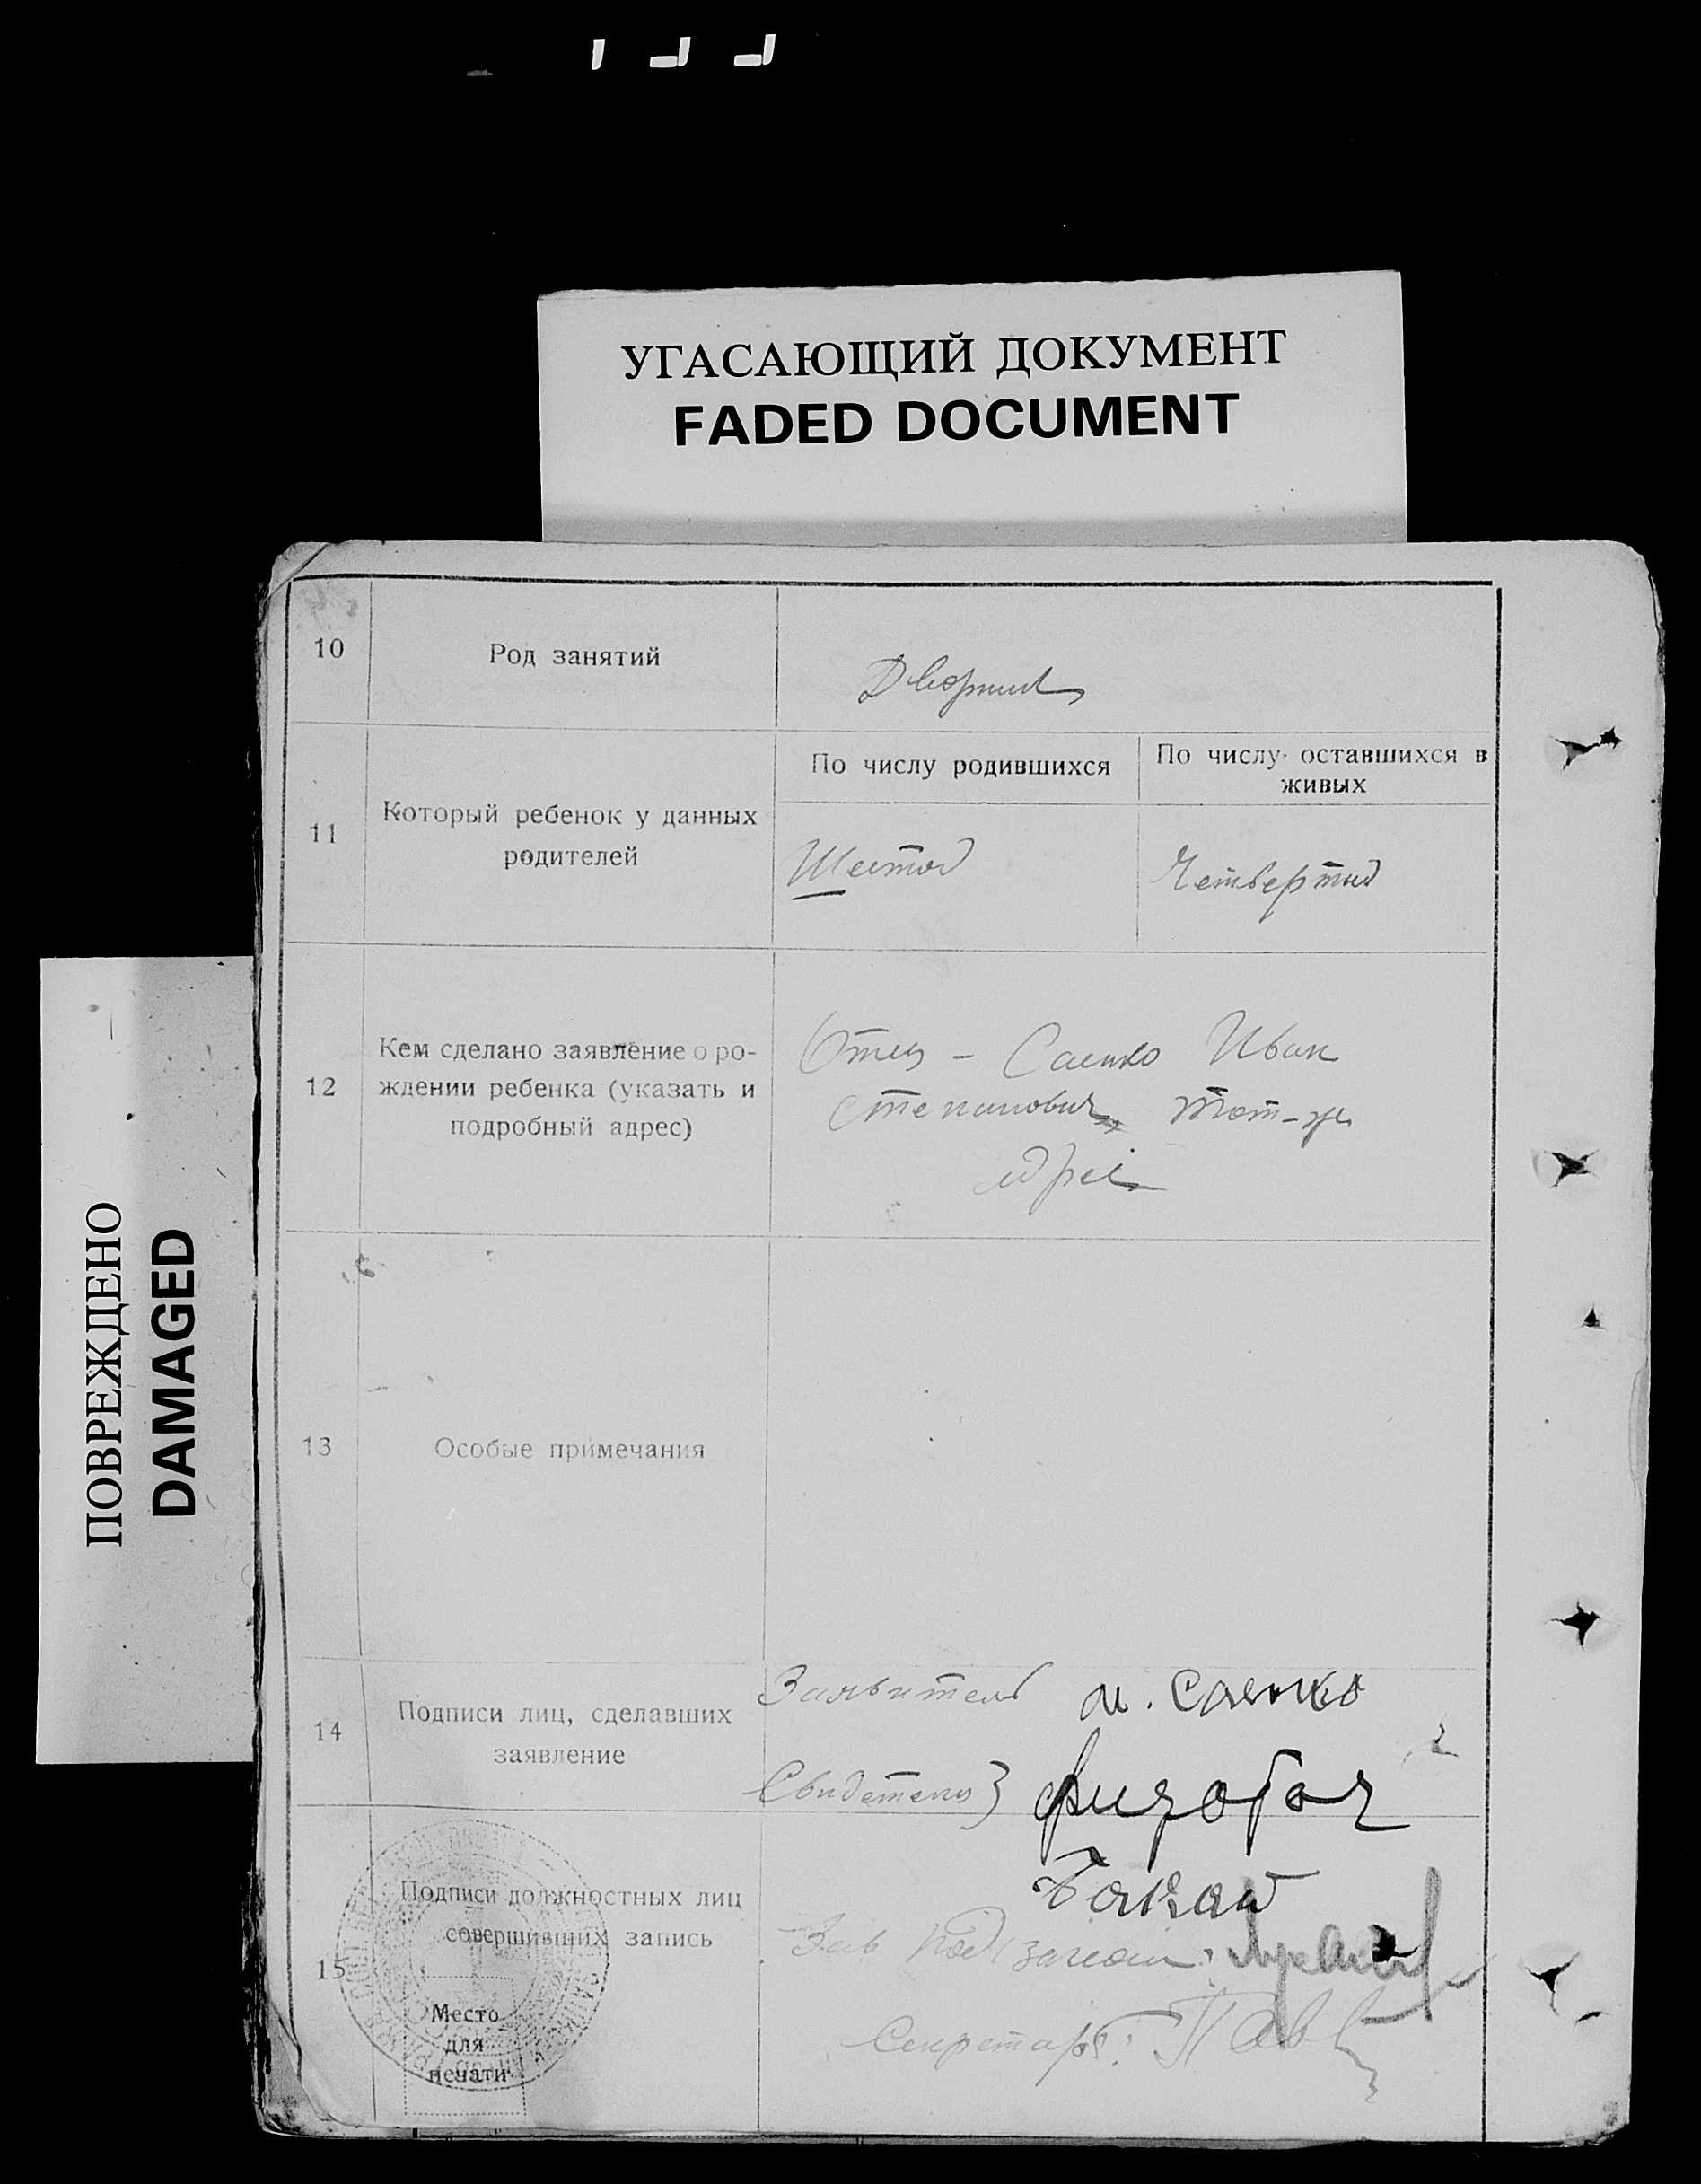 УГАСАЮЩИЙ ДОКУМЕНТ
FADED DOCUMENT
ПОВРЕЖДЕНО
DAMAGED
10
Род занятий
Дворник
11
Который ребенок у данных
родителей
По числу родившихся
По числу оставшихся в
живых
Шестой
Четвертый
12
Кем сделано заявление о ро-
ждении ребенка (указать и
подробный адрес)
Отец - Саенко Иван
Степанович тот-же
адрес
13
Особые примечания
14
Подписи лиц, сделавших
заявление
Заявитель и. Саенко
Свидетели
15
Подписи должностных лиц
совершивших запись
Место
для
печати
Зав
Секретарь: